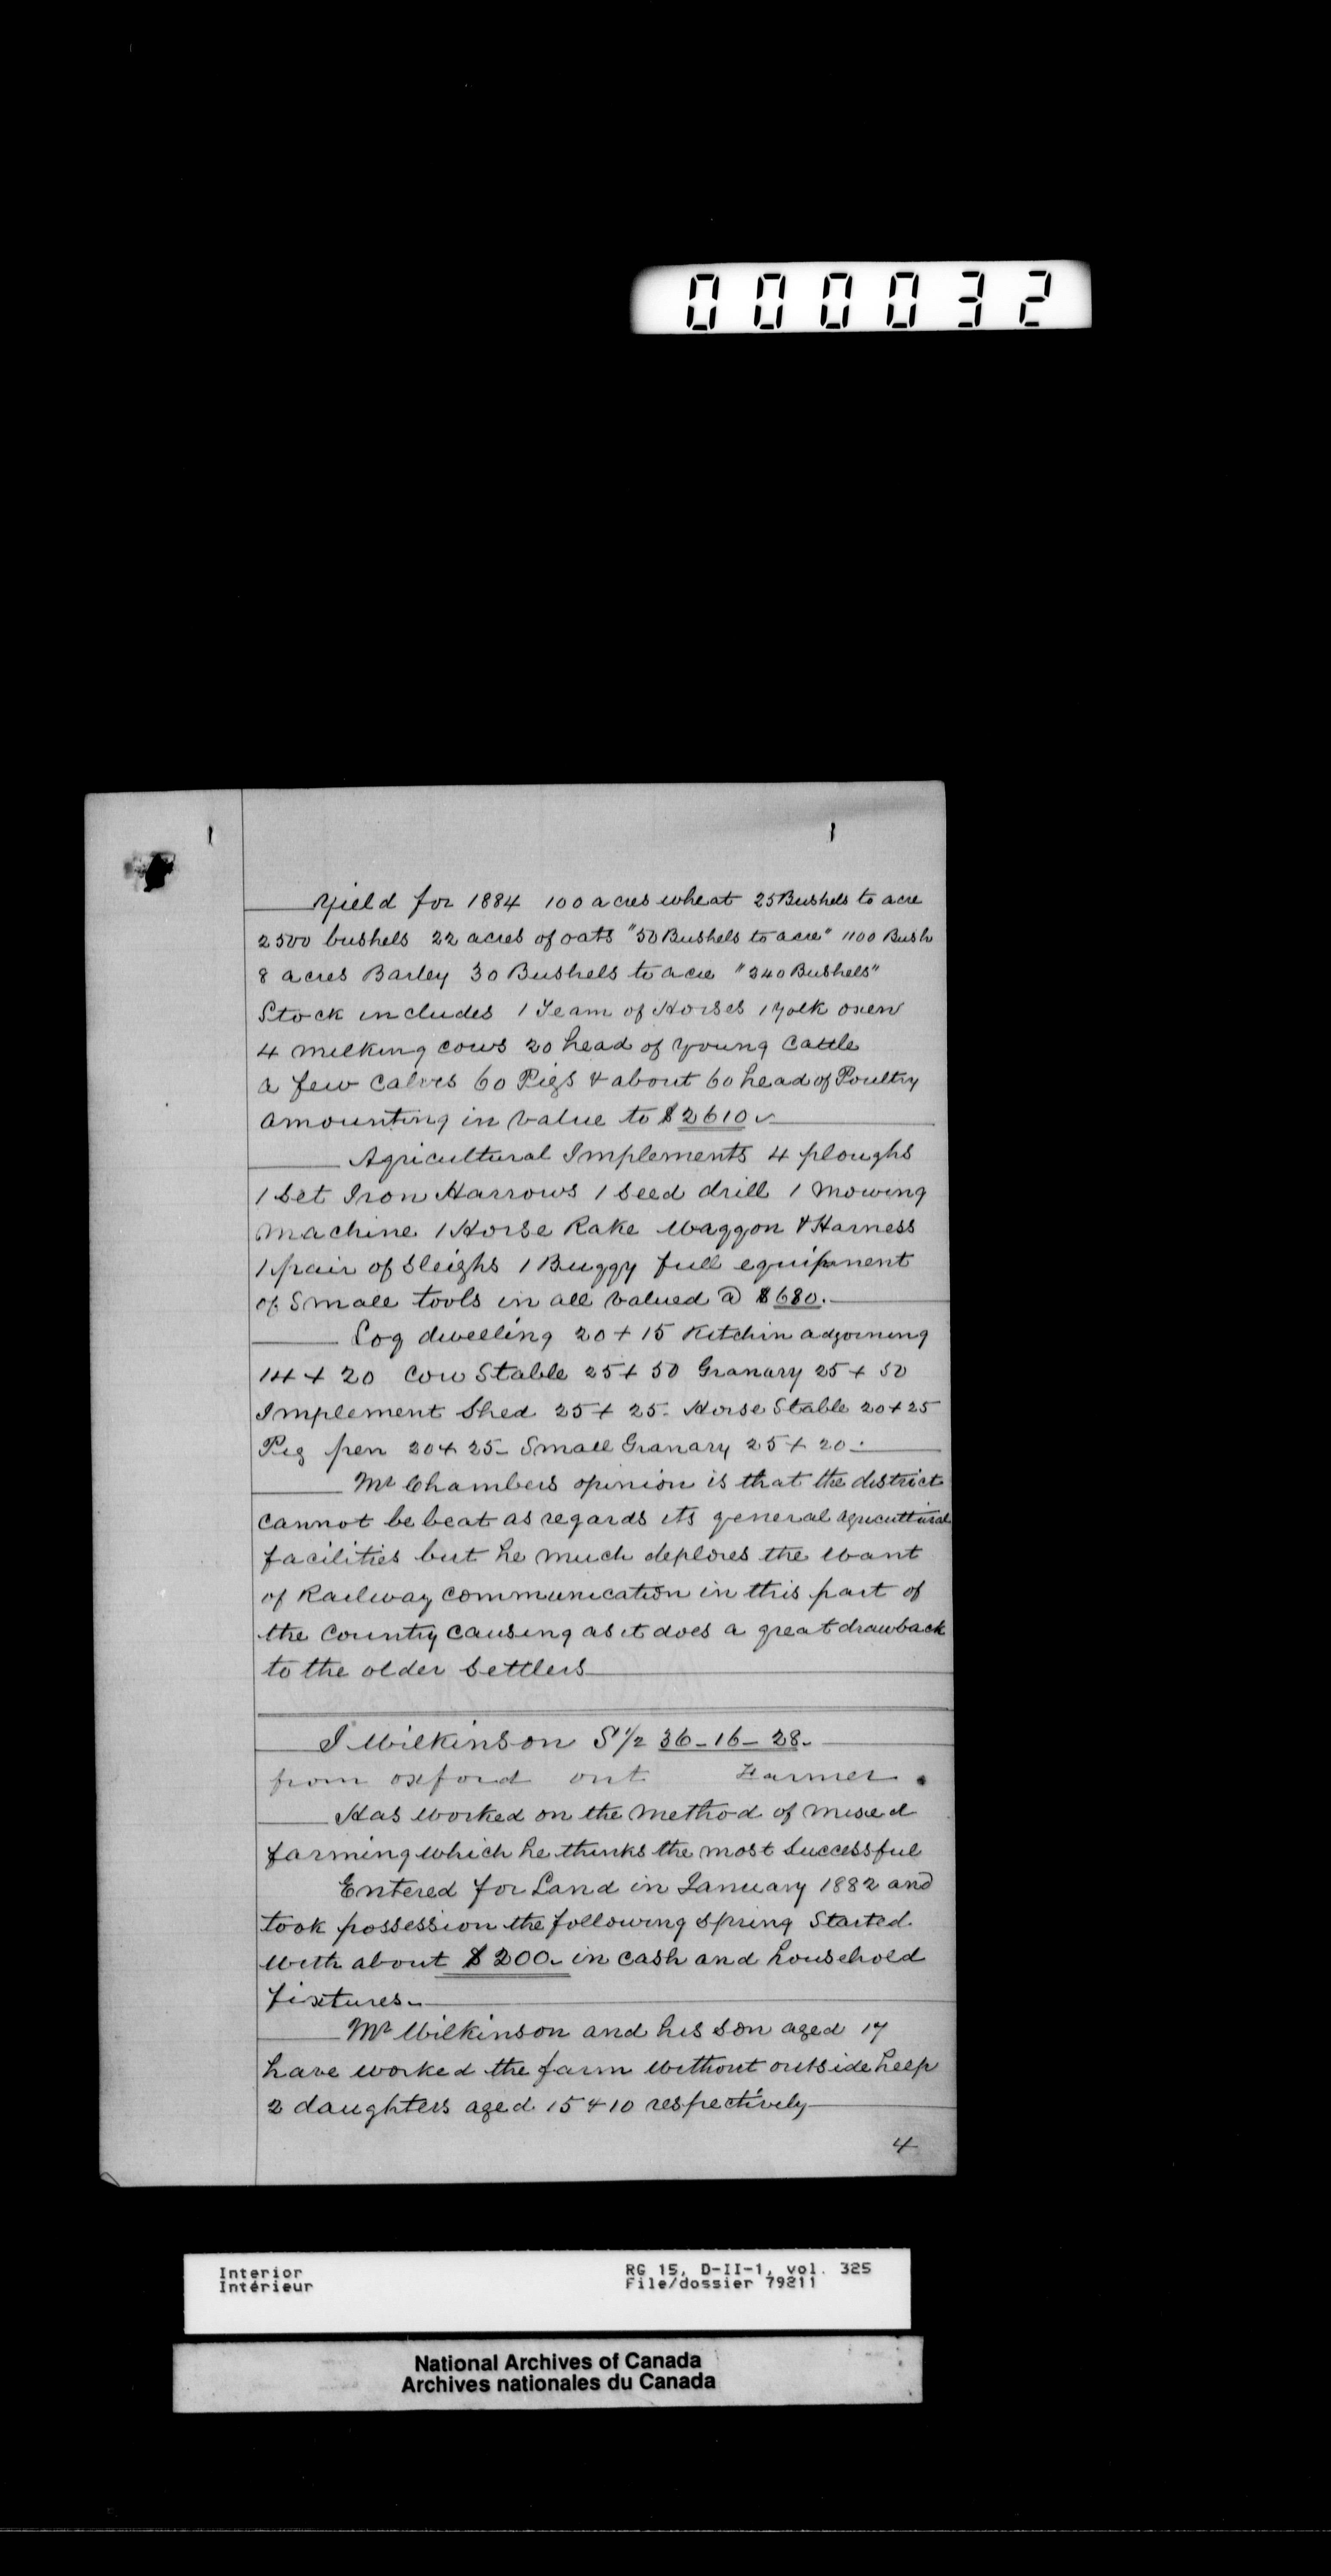 000032
Yield for 1884 100 acres wheat 25 Bushels to acre
2500 bushels 22 acres of oats "50 Bushels to acre" 1100 Bush
8 acres Barley 30 Bushels to acre "240 Bushels"
Stock includes 1 Team of Horses 1 yolk oxen
4 milking cows 20 head of young Cattle
a few Calves 60 Pigs & about 60 head of Poultry
amounting in value to $2610
Agricultural Implements 4 ploughs
1 Set Iron Harrows 1 Seed drill 1 Mowing
Machine 1 Horse Rake Waggon & Harness
1 pair of Sleighs 1 Buggy full equipment
of Small tools in all valued @ $680.
Log dwelling 20 + 15 Kitchin adjoining
14 + 20 Cow Stable 25 + 50 Granary 25 + 50
Implement Shed 25 + 25 - Horse Stable 20 + 25
Pig pen 20 + 25 - Small Granary 25 + 20 -
Mr Chambers opinion is that the district
cannot be beat as regards its general agricultural
facilities but he much deplores the want
of Railway communication in this part of
the Country causing as it does a great drawback
to the older Settlers
J Wilkinson S 1/2 36 - 16 - 28 -
from oxford ont Farmer.
Has worked on the method of mixed
farming which he thinks the most Successful
Entered for Land in January 1882 and
took possession the following Spring Started
with about $200 - in cash and household
fixtures -
Mr Wilkinson and his Son aged 17
have worked the farm without outside help
2 daughters aged 15 & 10 respectively
4
Interior RG 15, D-II-1, vol. 325
Intérieur File/dossier 79211
National Archives of Canada
Archives nationales du Canada